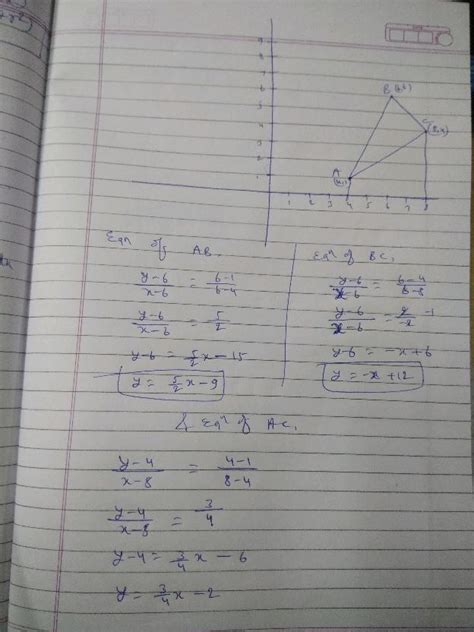 9
8
7
6
5
4
3
2
1
B (6,6)
C (8,4)
A (4,1)
1 2 3 4 5 6 7 8
Eqn of AB,
y-6/x-6 = 6-1/6-4
y-6/x-6 = 5/2
y-6 = 5/2x-15
y = 5/2x-9
Eqn of BC,
y-6/x-6 = 6-4/6-8
y-6/x-6 = 2/-2 -1
y-6 = -x+6
y = -x+12
& Eqn of AC,
y-4/x-8 = 4-1/8-4
y-4/x-8 = 3/4
y-4 = 3/4x - 6
y = 3/4x-2